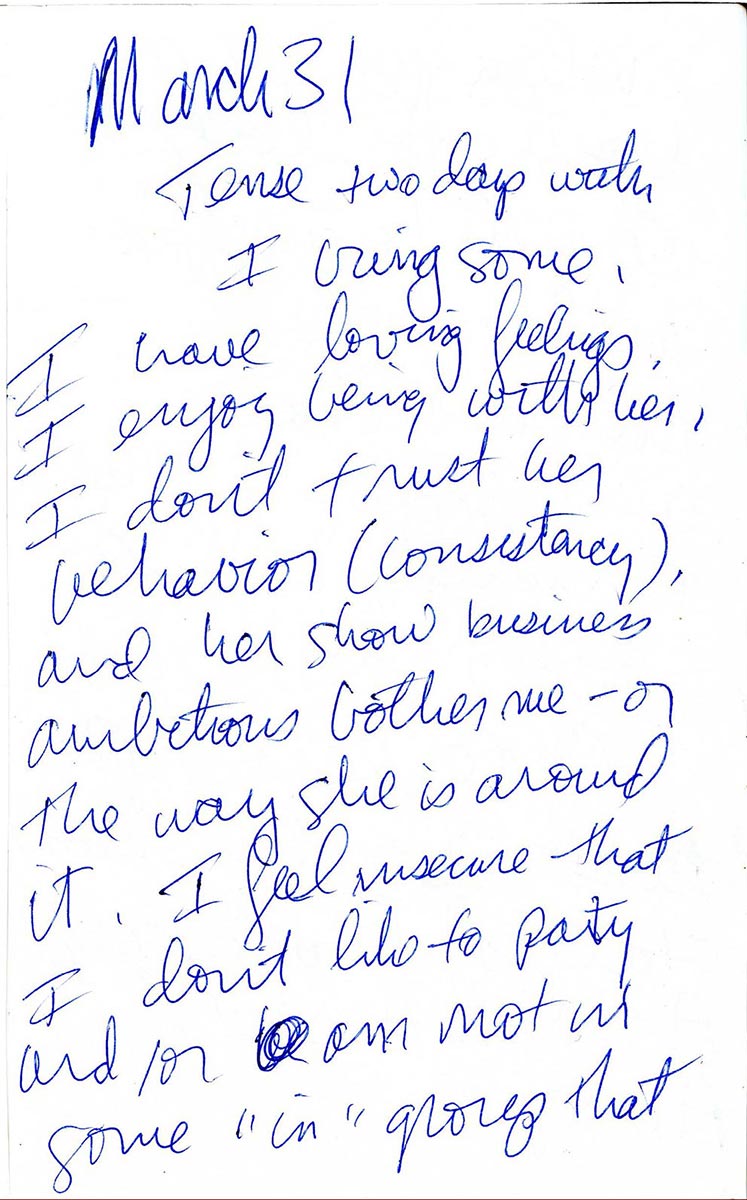 March 31
Tense two days with
I bring some.
I have loving feelings.
I enjoy being with her.
I don't trust her
behavior (consistancy),
and her show business
ambitions bother me – or
the way she is around
it. I feel insecure that
I don't like to party
and/or am not in
some "in" group that